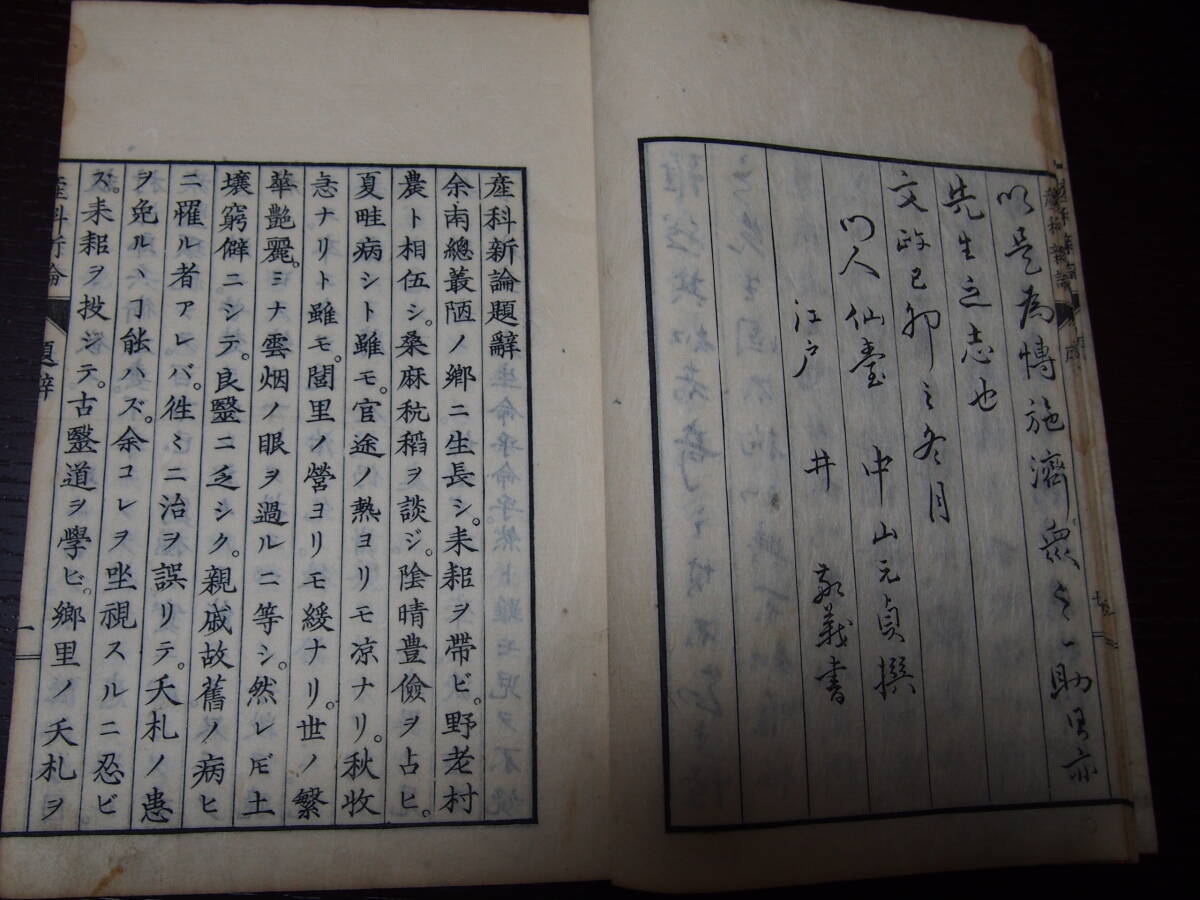 以是為博施濟衆之一助是亦
先生之志也
文政己卯之冬月
門人仙臺 中山元貞撰
江戸 井 義書
產科新論題辭
余南總叢陋ノ鄉ニ生長シ。耒耜ヲ帶ビ。野老村
農ト相伍シ。桑麻秔稻ヲ談ジ。陰晴豊儉ヲ占ヒ。
夏畦病シト雖モ。官途ノ熱ヨリモ凉ナリ。秋收
怱ナリト雖モ。閭里ノ營ヨリモ緩ナリ。世ノ繁
華艷麗。ミナ雲烟ノ眼ヲ過ルニ等シ。然レ𪜈土
壤窮僻ニシテ。良醫ニ乏シク。親戚故舊ノ病ヒ
ニ罹ル者アレバ。徃〻ニ治ヲ誤リテ。夭札ノ患
ヲ免ルヽヿ能ハズ。余コレヲ坐視スルニ忍ビ
ズ。耒耜ヲ投ジテ。古醫道ヲ學ビ。鄉里ノ夭札ヲ
產科新論 題辭 一